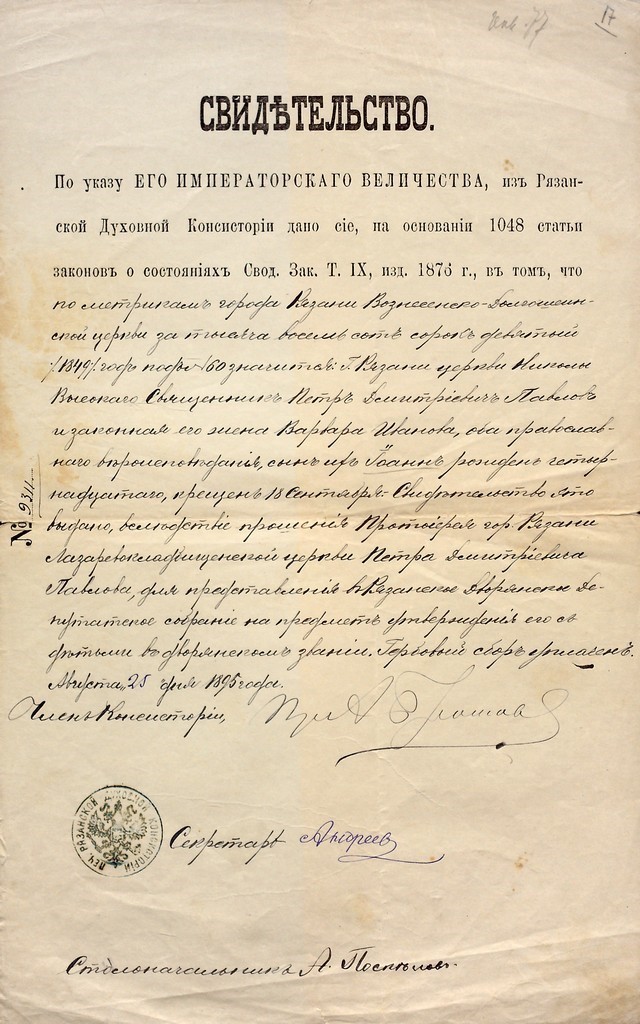 17
77
СВИДѢТЕЛЬСТВО.
По указу ЕГО ИМПЕРАТОРСКАГО ВЕЛИЧЕСТВА, изъ Рязан-
ской Духовной Консисторіи дано сіе, на основаніи 1048 статьи
законовъ о состояніяхъ Свод. Зак. Т. IX, изд. 1876 г., въ томъ, что
по метрикамъ города Рязани Вознесенско-Долгошеин-
ской церкви за тысяча восемьсотъ сорокъ девятый
/1849/ годъ подъ № 60 значится: Г. Рязани церкви Николы
Высокаго Священникъ Петръ Димитріевичъ Павловъ
и законная его жена Варвара Иванова, оба православ-
наго вѣроисповѣданія, сынъ ихъ Іоаннъ рожденъ четыр-
надцатаго, крещенъ 18 Сентября. Свидѣтельство это
выдано, вслѣдствіе прошенія Протоіерея гор. Рязани
Лазаревокладбищенской церкви Петра Димитріевича
Павлова, для представленія въ Рязанское Дворянское Де-
путатское собраніе на предметъ утвержденія его съ
дѣтьми въ дворянскомъ званіи. Гербовый сборъ уплаченъ.
Августа 25 дня 1895 года.
№ 9311
Членъ Консисторіи,
ПЕЧ. РЯЗАНСКОЙ ДУХОВНОЙ КОНСИСТОРІИ
Секретарь Андреев
Столоначальникъ А. Поспѣловъ.